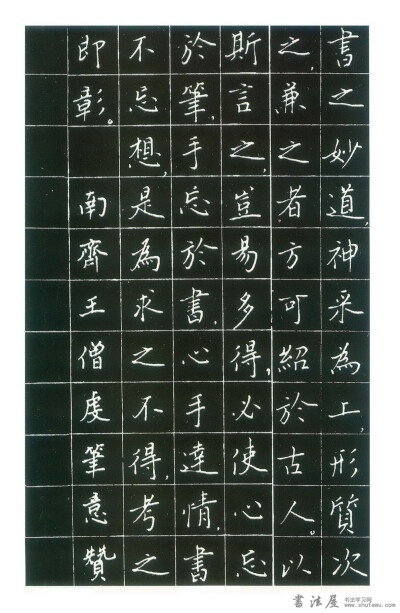 書之妙道,神采為上,形質次
之,兼之者方可紹於古人。以
斯言之,豈易多得,必使心忘
於筆,手忘於書,心手達情,書
不忘想,是為求之不得,考之
即彰。 南齊王僧虔筆意贊
書法屋
书法学习网
www.shufawu.com